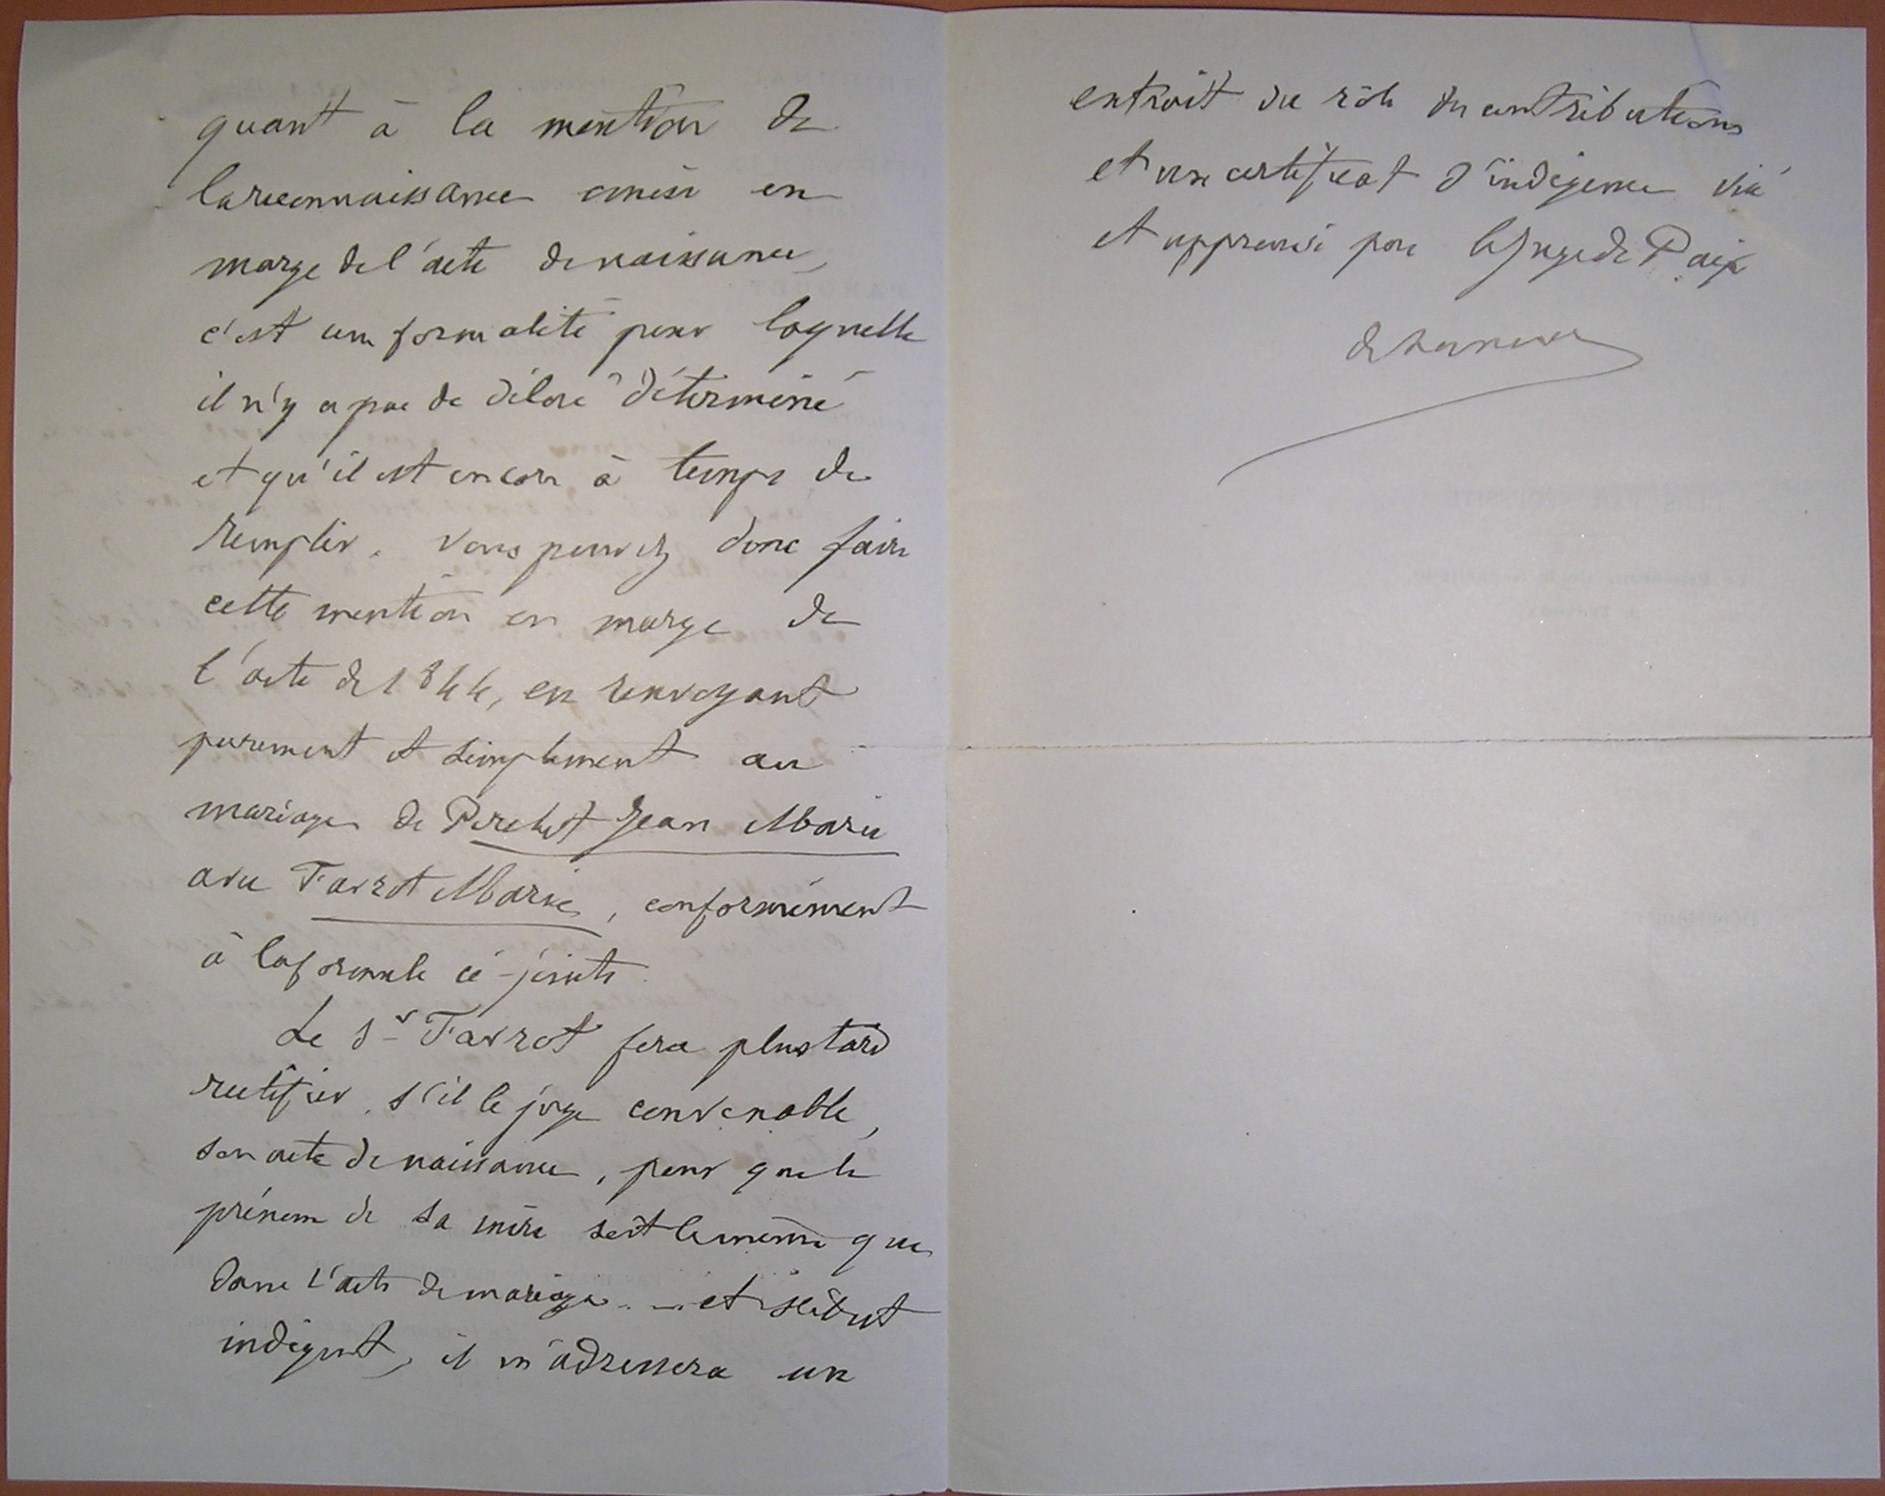 quant à la mention de
la reconnaissance en
marge de l'acte de naissance,
c'est une formalité pour laquelle
il n'y a pas de délai déterminé
et qu'il est encore à temps de
remplir. Vous pouvez donc faire
cette mention en marge de
l'acte de 1844, en renvoyant
purement et simplement au
mariage de Perchet Jean Marie
avec Favrot Marie, conformément
à la formule ci-jointe.
Le Sr Favrot fera plus tard
rectifier, s'il le juge convenable,
son acte de naissance, pour que le
prénom de sa mère soit le même que
dans l'acte de mariage et s'il est
indigent, il m'adressera un
extrait du rôle des contributions
et un certificat d'indigence visé
et approuvé par le Juge de Paix